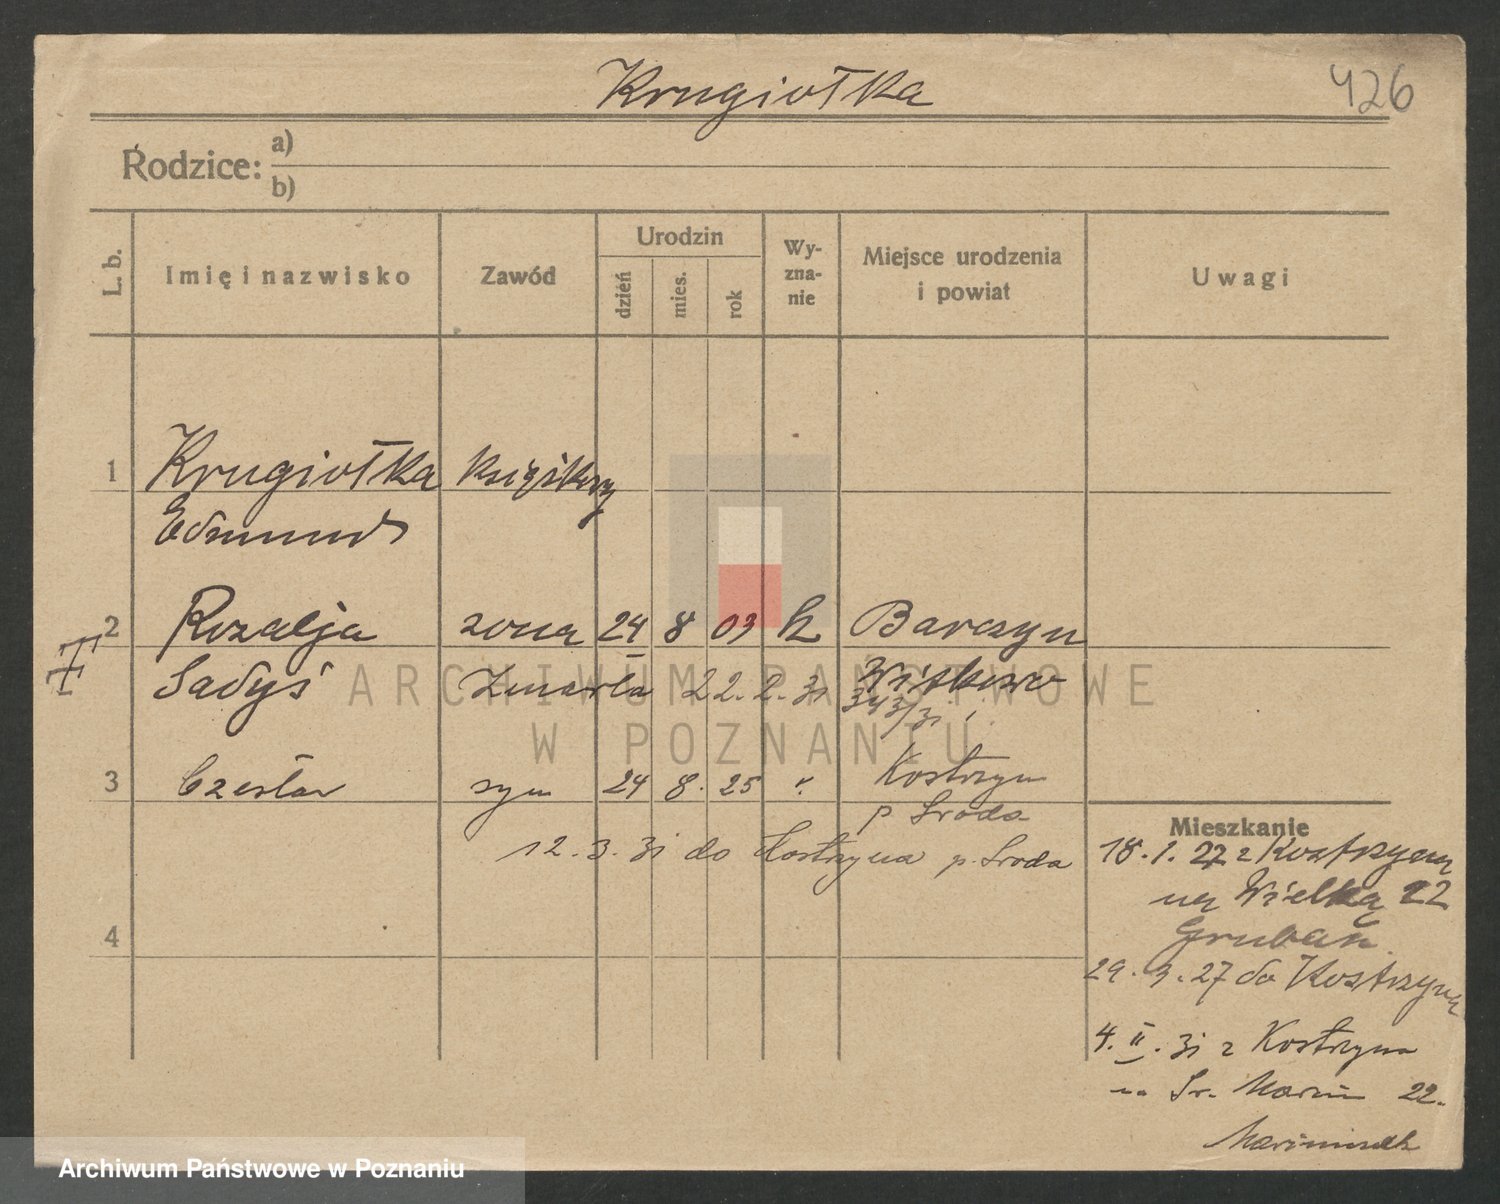 Krugiołka
426
Rodzice: a)
b)
L. b. Imię i nazwisko Zawód Urodzin dzień mies. rok Wyznanie Miejsce urodzenia i powiat Uwagi
1 Krugiołka książkowy
Edmund
2 Rozalja żona 24 8 03 k Barczyn
Sadyś zmarła 22.2.31 Witkowo
343/31
3 Czesław syn 24 8. 25 k. Kostrzyn
p Sroda
12.3.31 do Kostrzyna p. Sroda
4
Mieszkanie
18.1.27 z Kostrzyna
na Wielką 22
29.3.27 do Kostrzyna
4.II.31 z Kostrzyna
na Św. Marcin 22.
ARCHIWUM PAŃSTWOWE
W POZNANIU
Archiwum Państwowe w Poznaniu